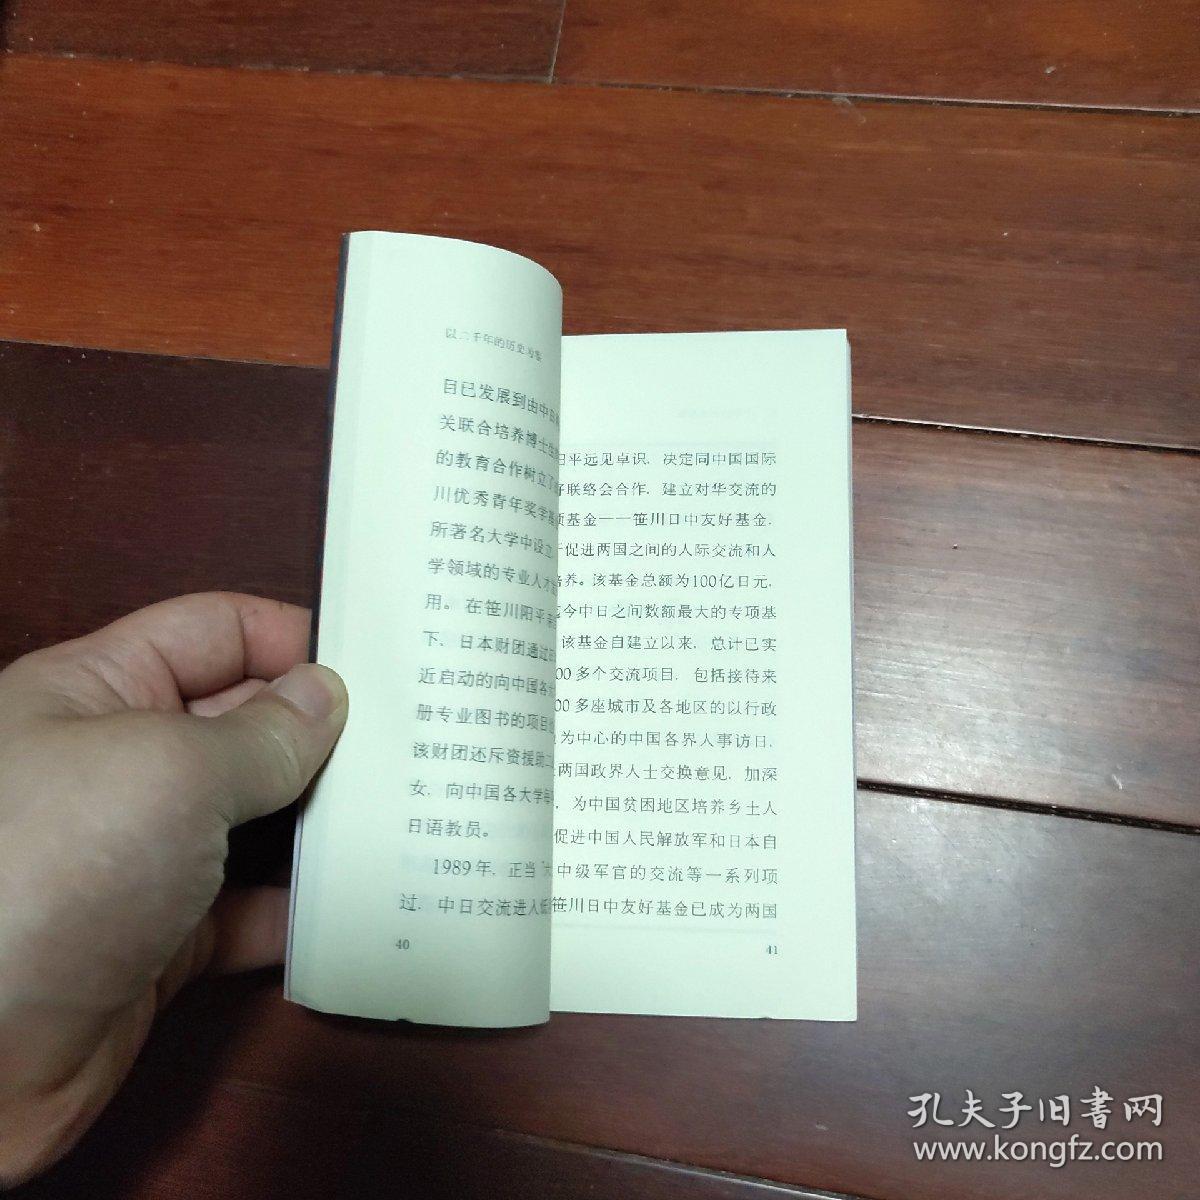 以二千年的历史为鉴
目已发展到由中日
关联合培养博士生
的教育合作树立了
川优秀青年奖学
所著名大学中设立
学领域的专业人才
用。在笹川阳平
下，日本财团通过
近启动的向中国各
册专业图书的项目
该财团还斥资援助二
女，向中国各大学每
日语教员。
1989年，正当
过，中日交流进入低
40
阳平远见卓识，决定同中国国际
好联络会合作，建立对华交流的
项基金——笹川日中友好基金，
于促进两国之间的人际交流和人
培养。该基金总额为100亿日元，
迄今中日之间数额最大的专项基
该基金自建立以来，总计已实
00多个交流项目，包括接待来
00多座城市及各地区的以行政
为中心的中国各界人事访日，
两国政界人士交换意见，加深
，为中国贫困地区培养乡土人
促进中国人民解放军和日本自
大中级军官的交流等一系列项
笹川日中友好基金已成为两国
41
孔夫子旧书网
www.kongfz.com